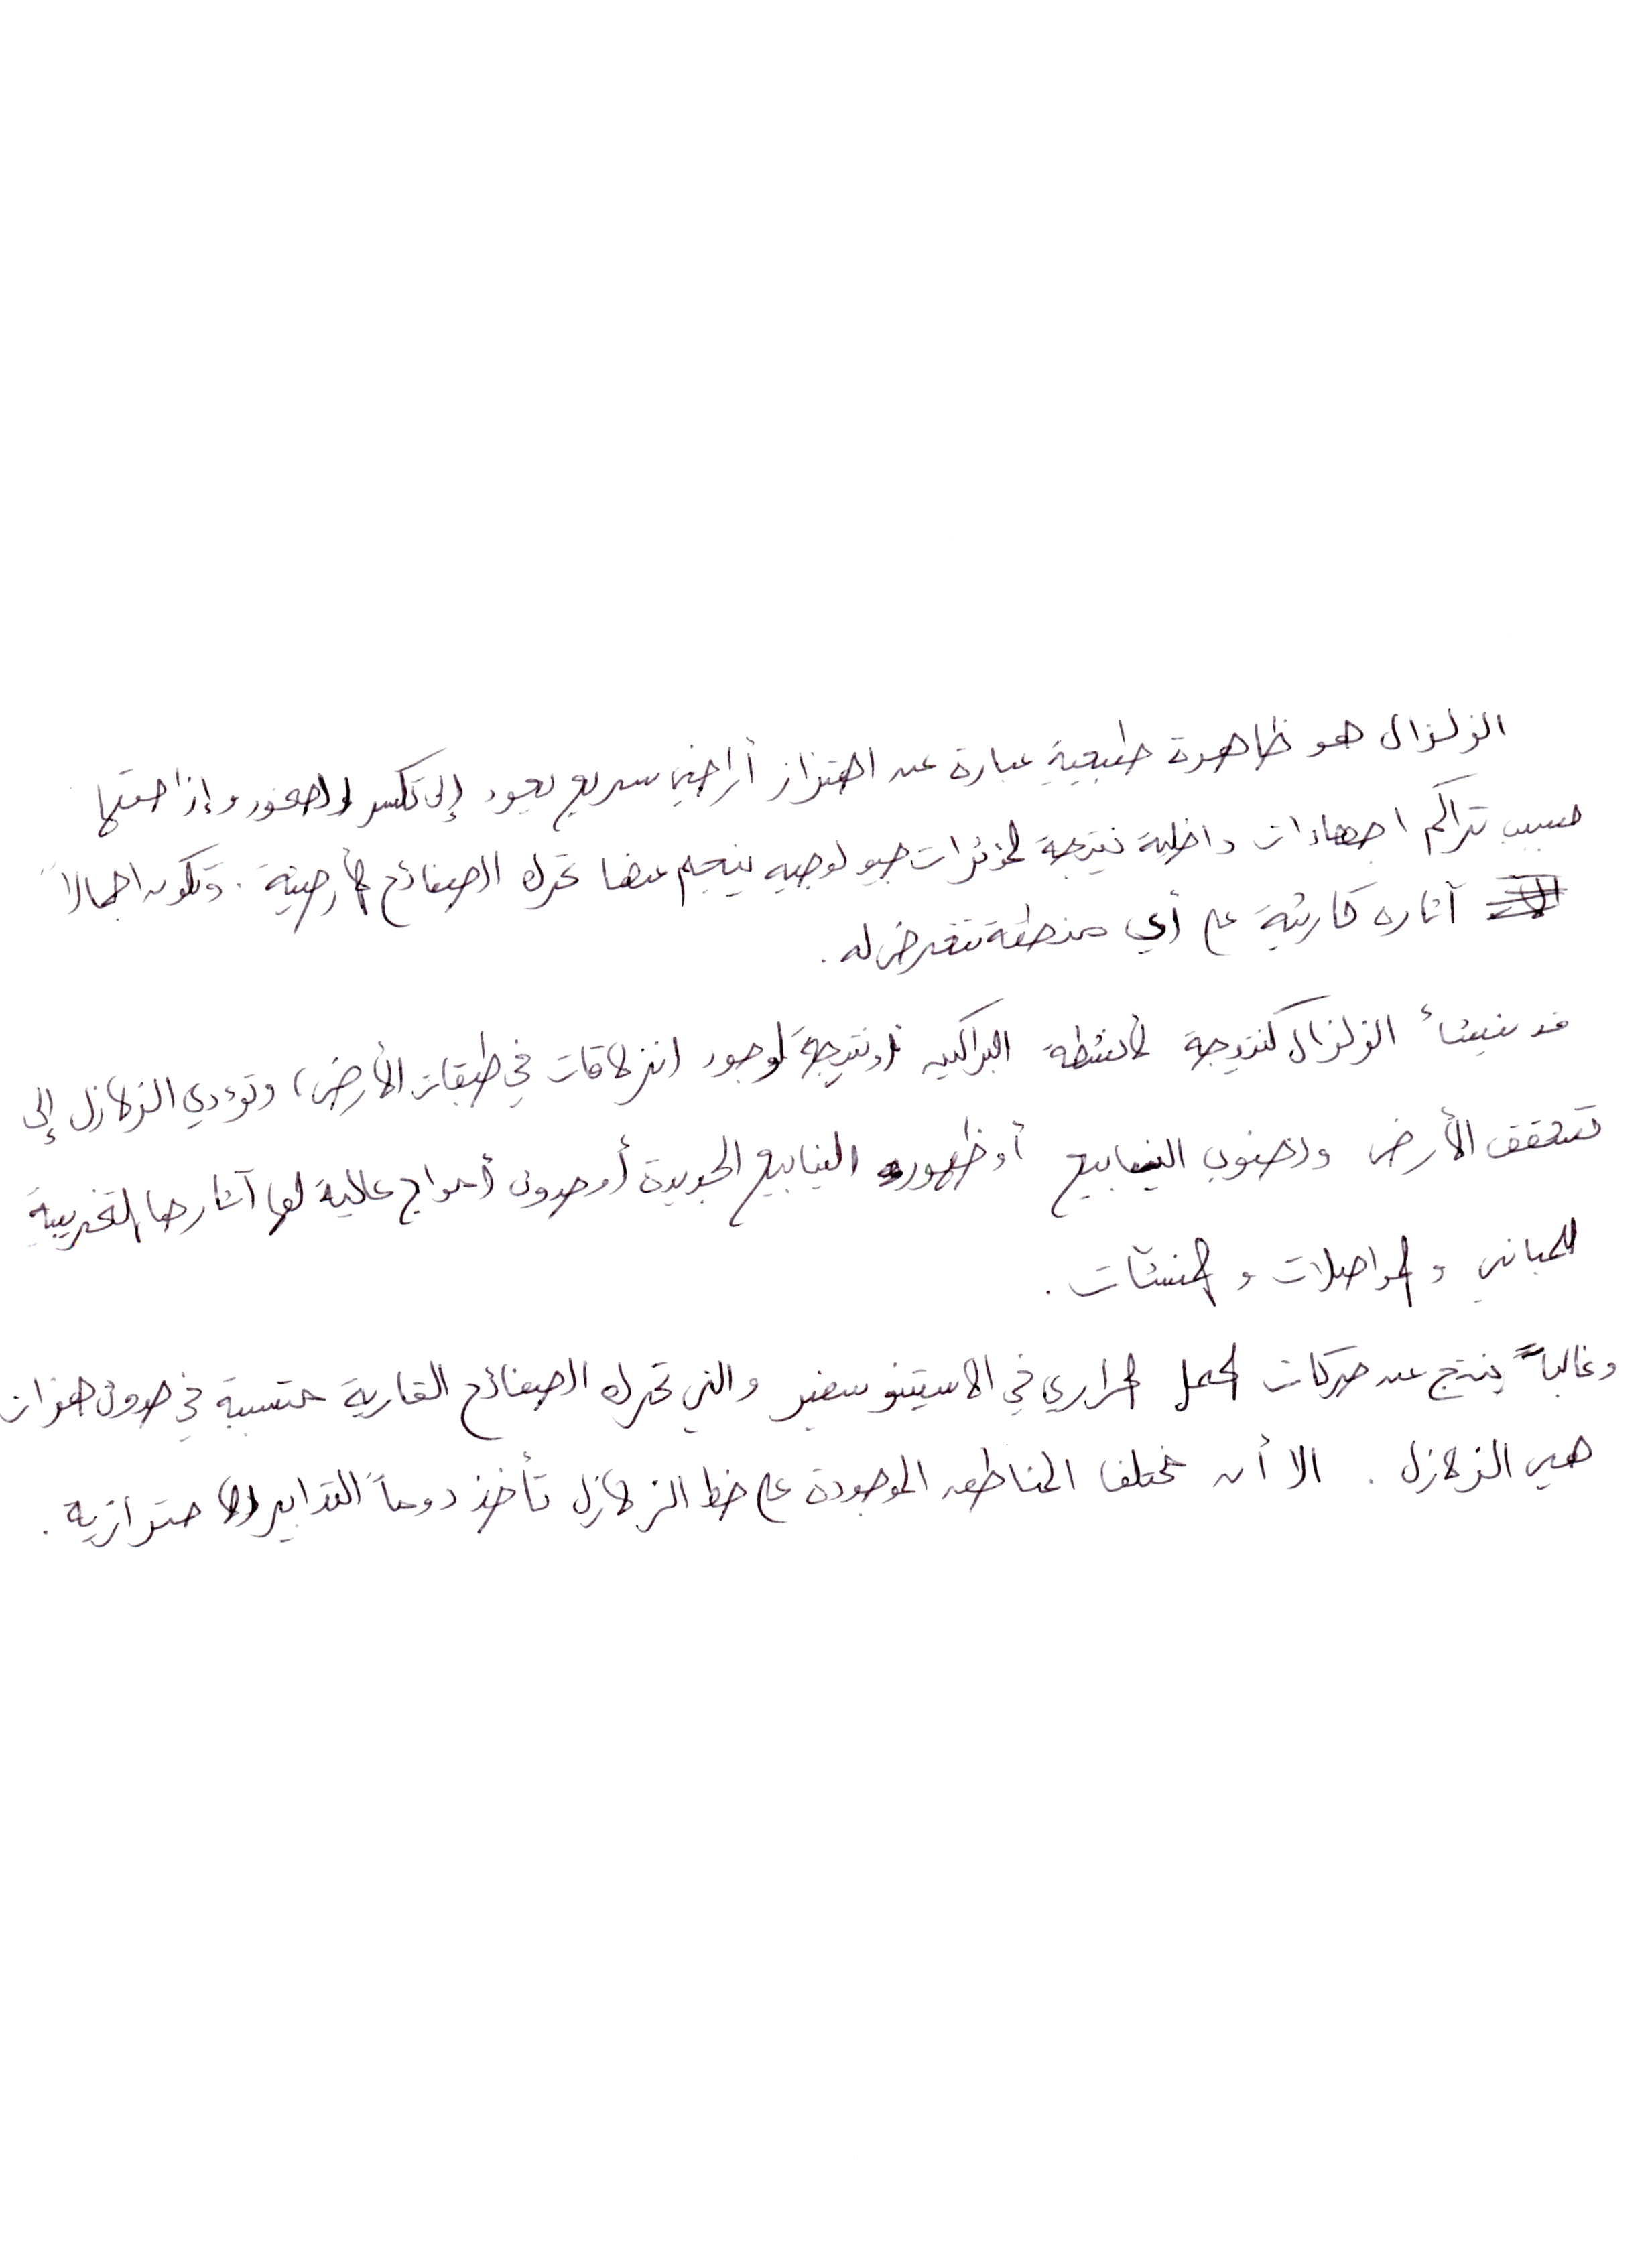 الزلزال هو ظاهرة طبيعية عبارة عن اهتزاز أراضي سريع يعود إلى تكسر الصخور وإزاحتها
بسبب تراكم اجهادات داخلية نتيجة لمؤثرات جيولوجيه ينجم عنها تحرك الصفائح الأرضية . وتكون اجمالاً
آثاره كارثية على أي منطقة تتعرض له .
قد ينشأ الزلزال كنتيجة لأنشطة البراكين أو نتيجة لوجود انزلاقات في طبقات الأرض ، وتؤدي الزلازل إلى
تشقق الأرض ونضوب الينابيع أو ظهور الينابيع الجديدة أو حدوث أمواج عالية لها آثارها التخريبية
للمباني و المواصلات و المنشآت .
وغالباً ينتج عن حركات الحمل الحراري في الاستينوسفير والتي تحرك الصفائح القارية متسببة في حدوث هزات
هي الزلازل . الا أن مختلف المناطق الموجودة على خط الزلازل تأخذ دوماً التدابير الاحترازية .